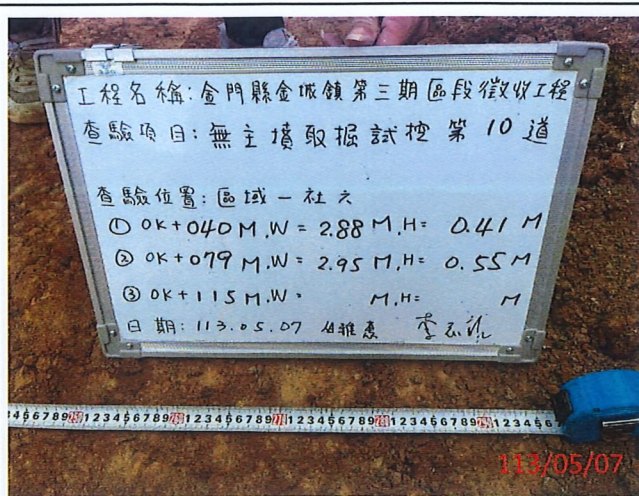 工程名稱:金門縣金城鎮第三期區段徵收工程
查驗項目:無主墳取掘試挖 第 10 道
查驗位置:區域一社六
① 0K+040 M.W= 2.88 M.H= 0.41 M
② 0K+079 M.W= 2.95 M.H= 0.55 M
③ 0K+115 M.W= M.H= M
日期:113.05.07
113/05/07